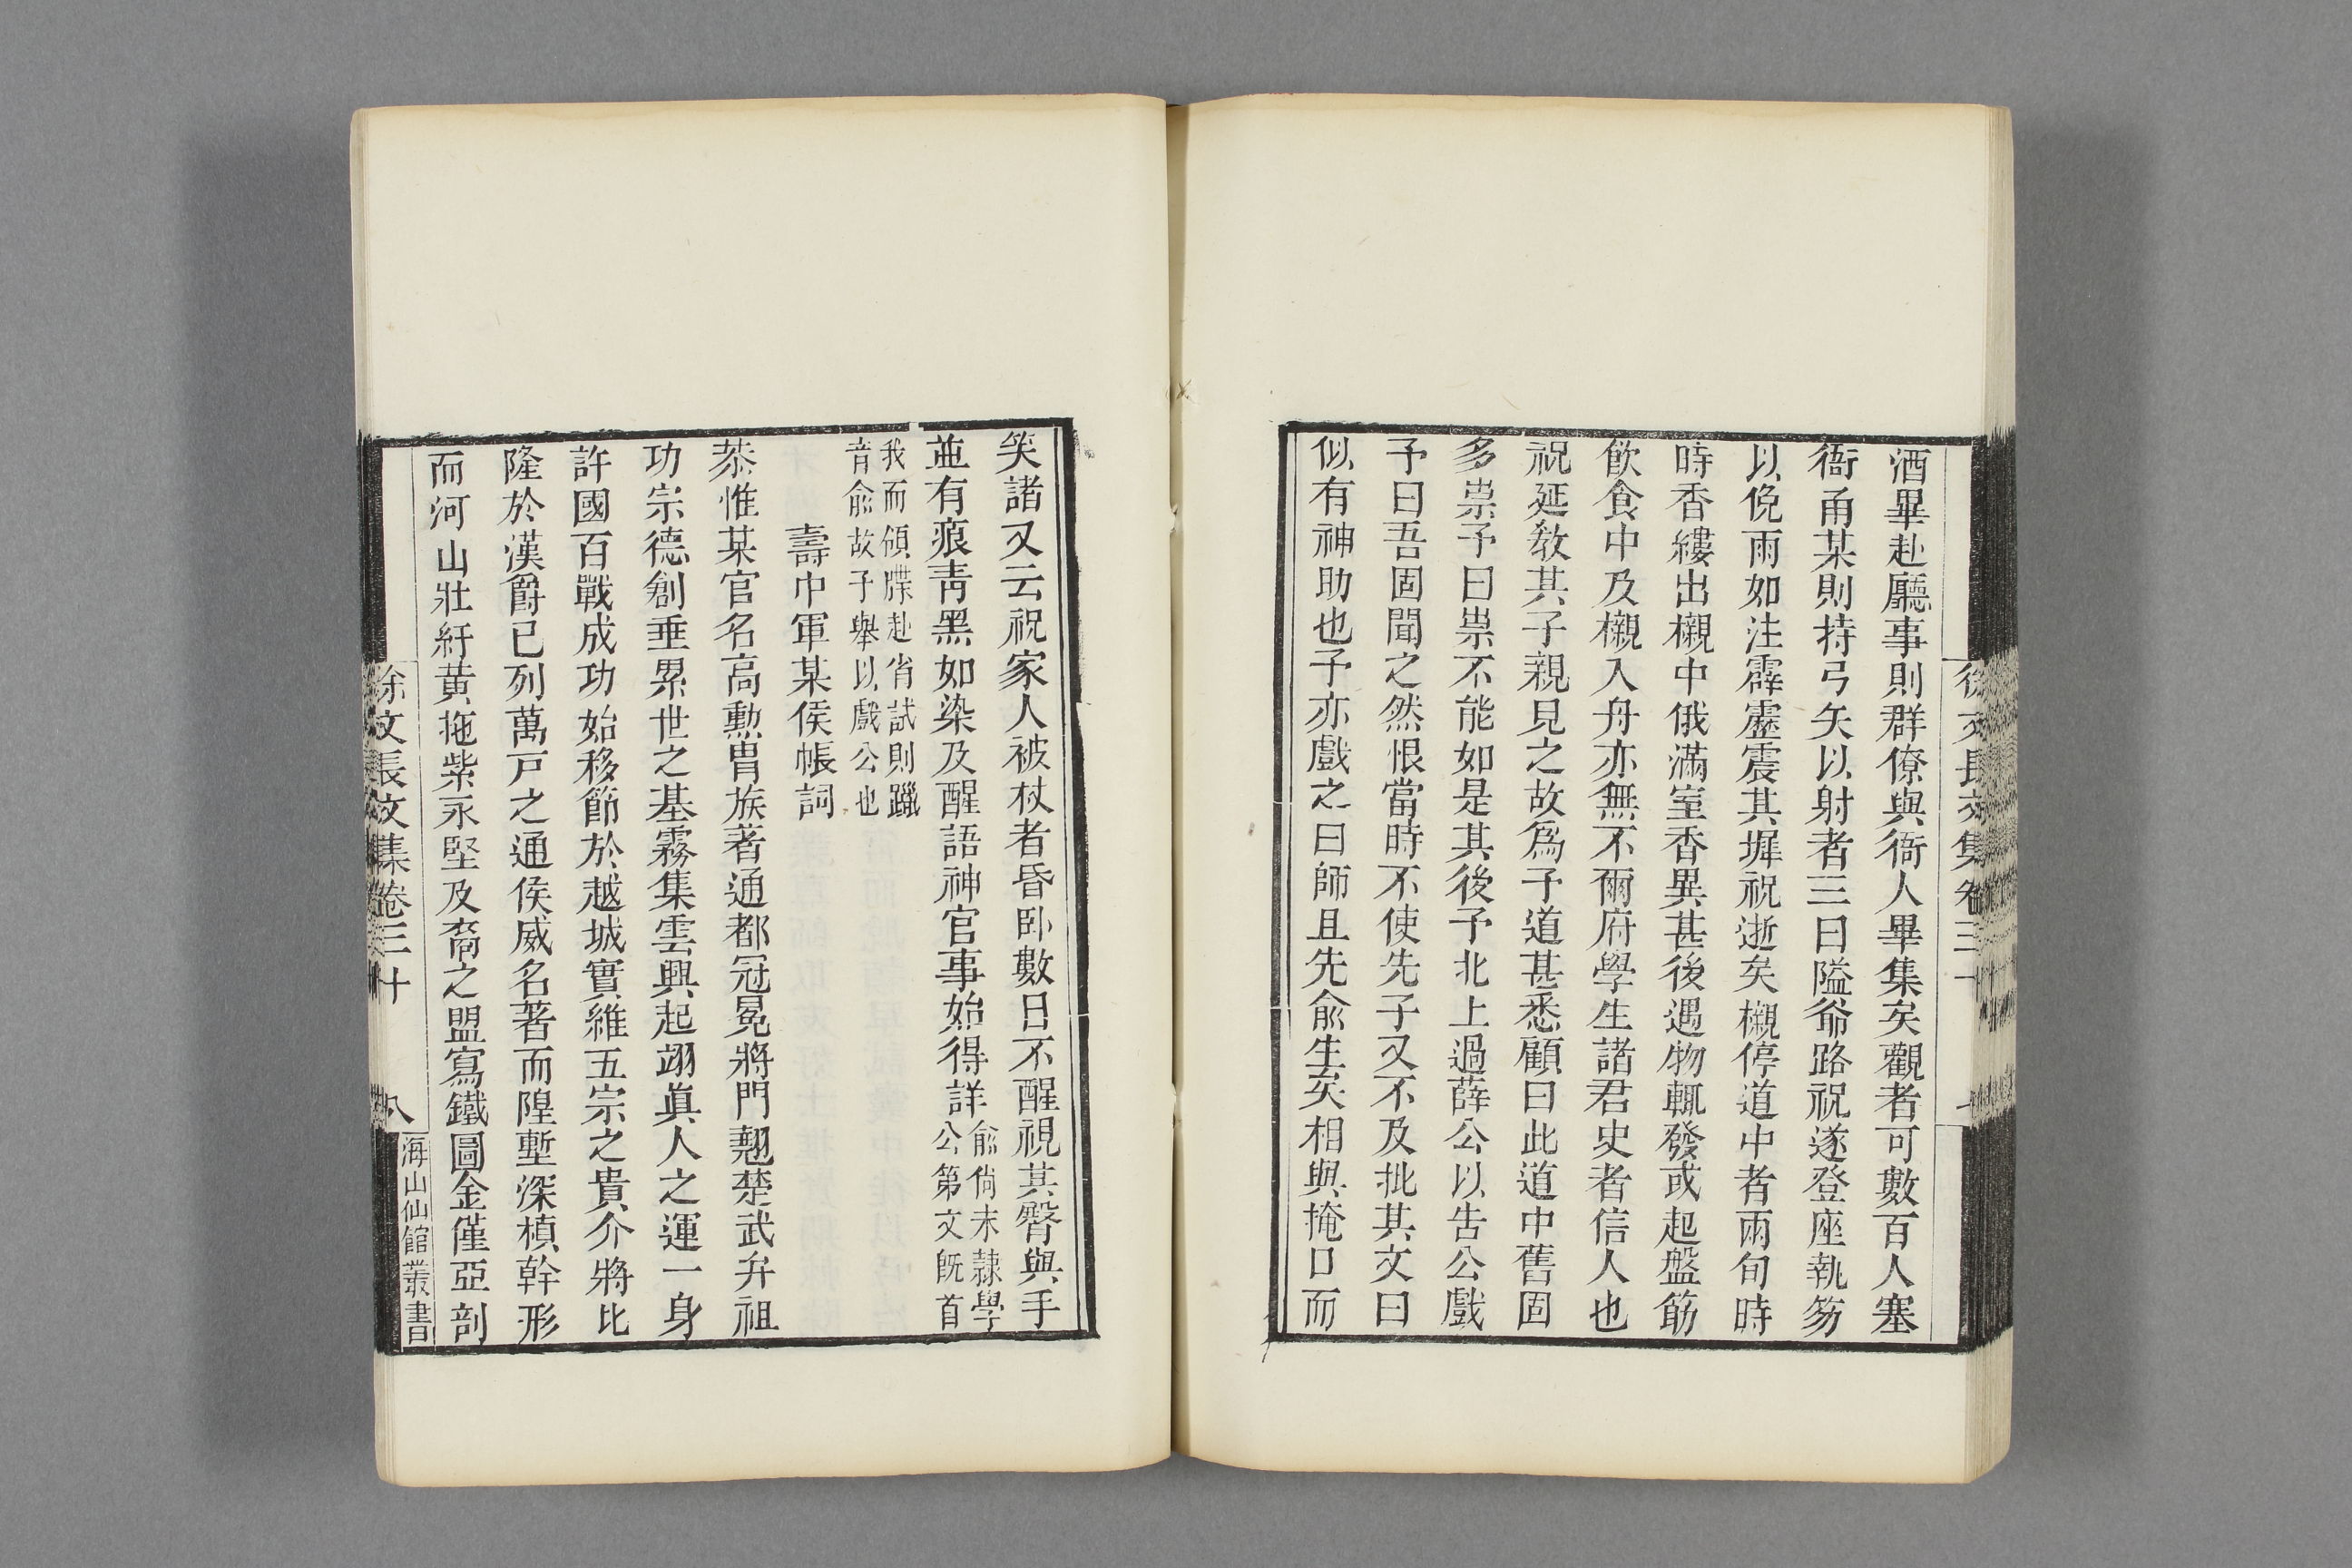 酒畢赴廳事則群僚與衙人畢集矣觀者可數百人塞
衙甬某則持弓矢以射者三曰隘爺路祝遂登座執笏
以俛雨如注霹靂震其墀祝逝矣櫬停道中者兩旬時
時香縷出櫬中俄滿室香異甚後遇物輒發或起盤筯
飲食中及櫬入舟亦無不爾府學生諸君史者信人也
祝延敎其子親見之故爲予道甚悉顧曰此道中舊固
多祟予曰祟不能如是其後予北上過薛公以告公戲
予曰吾固聞之然恨當時不使先子又不及批其文曰
似有神助也予亦戲之曰師且先俞生矣相與掩口而
笑諸又云祝家人被杖者昏卧數日不醒視其臀與手
並有痕靑黑如染及醒語神官事始得詳俞倘未隷學
公第文旣首
我而領牒赴省試則躐
音俞故予舉以戲公也
壽巾軍某侯帳詞
恭惟某官名高勳胄族著通都冠冕將門翹楚武弁祖
功宗德創垂累世之基霧集雲興起翊眞人之運一身
許國百戰成功始移節於越城實維五宗之貴介將比
隆於漢爵已列萬戸之通侯威名著而隍塹深楨幹形
而河山壯紆黃拖紫永堅及裔之盟寫鐵圖金僅亞剖
徐文長文集卷三十
八
海山仙館叢書